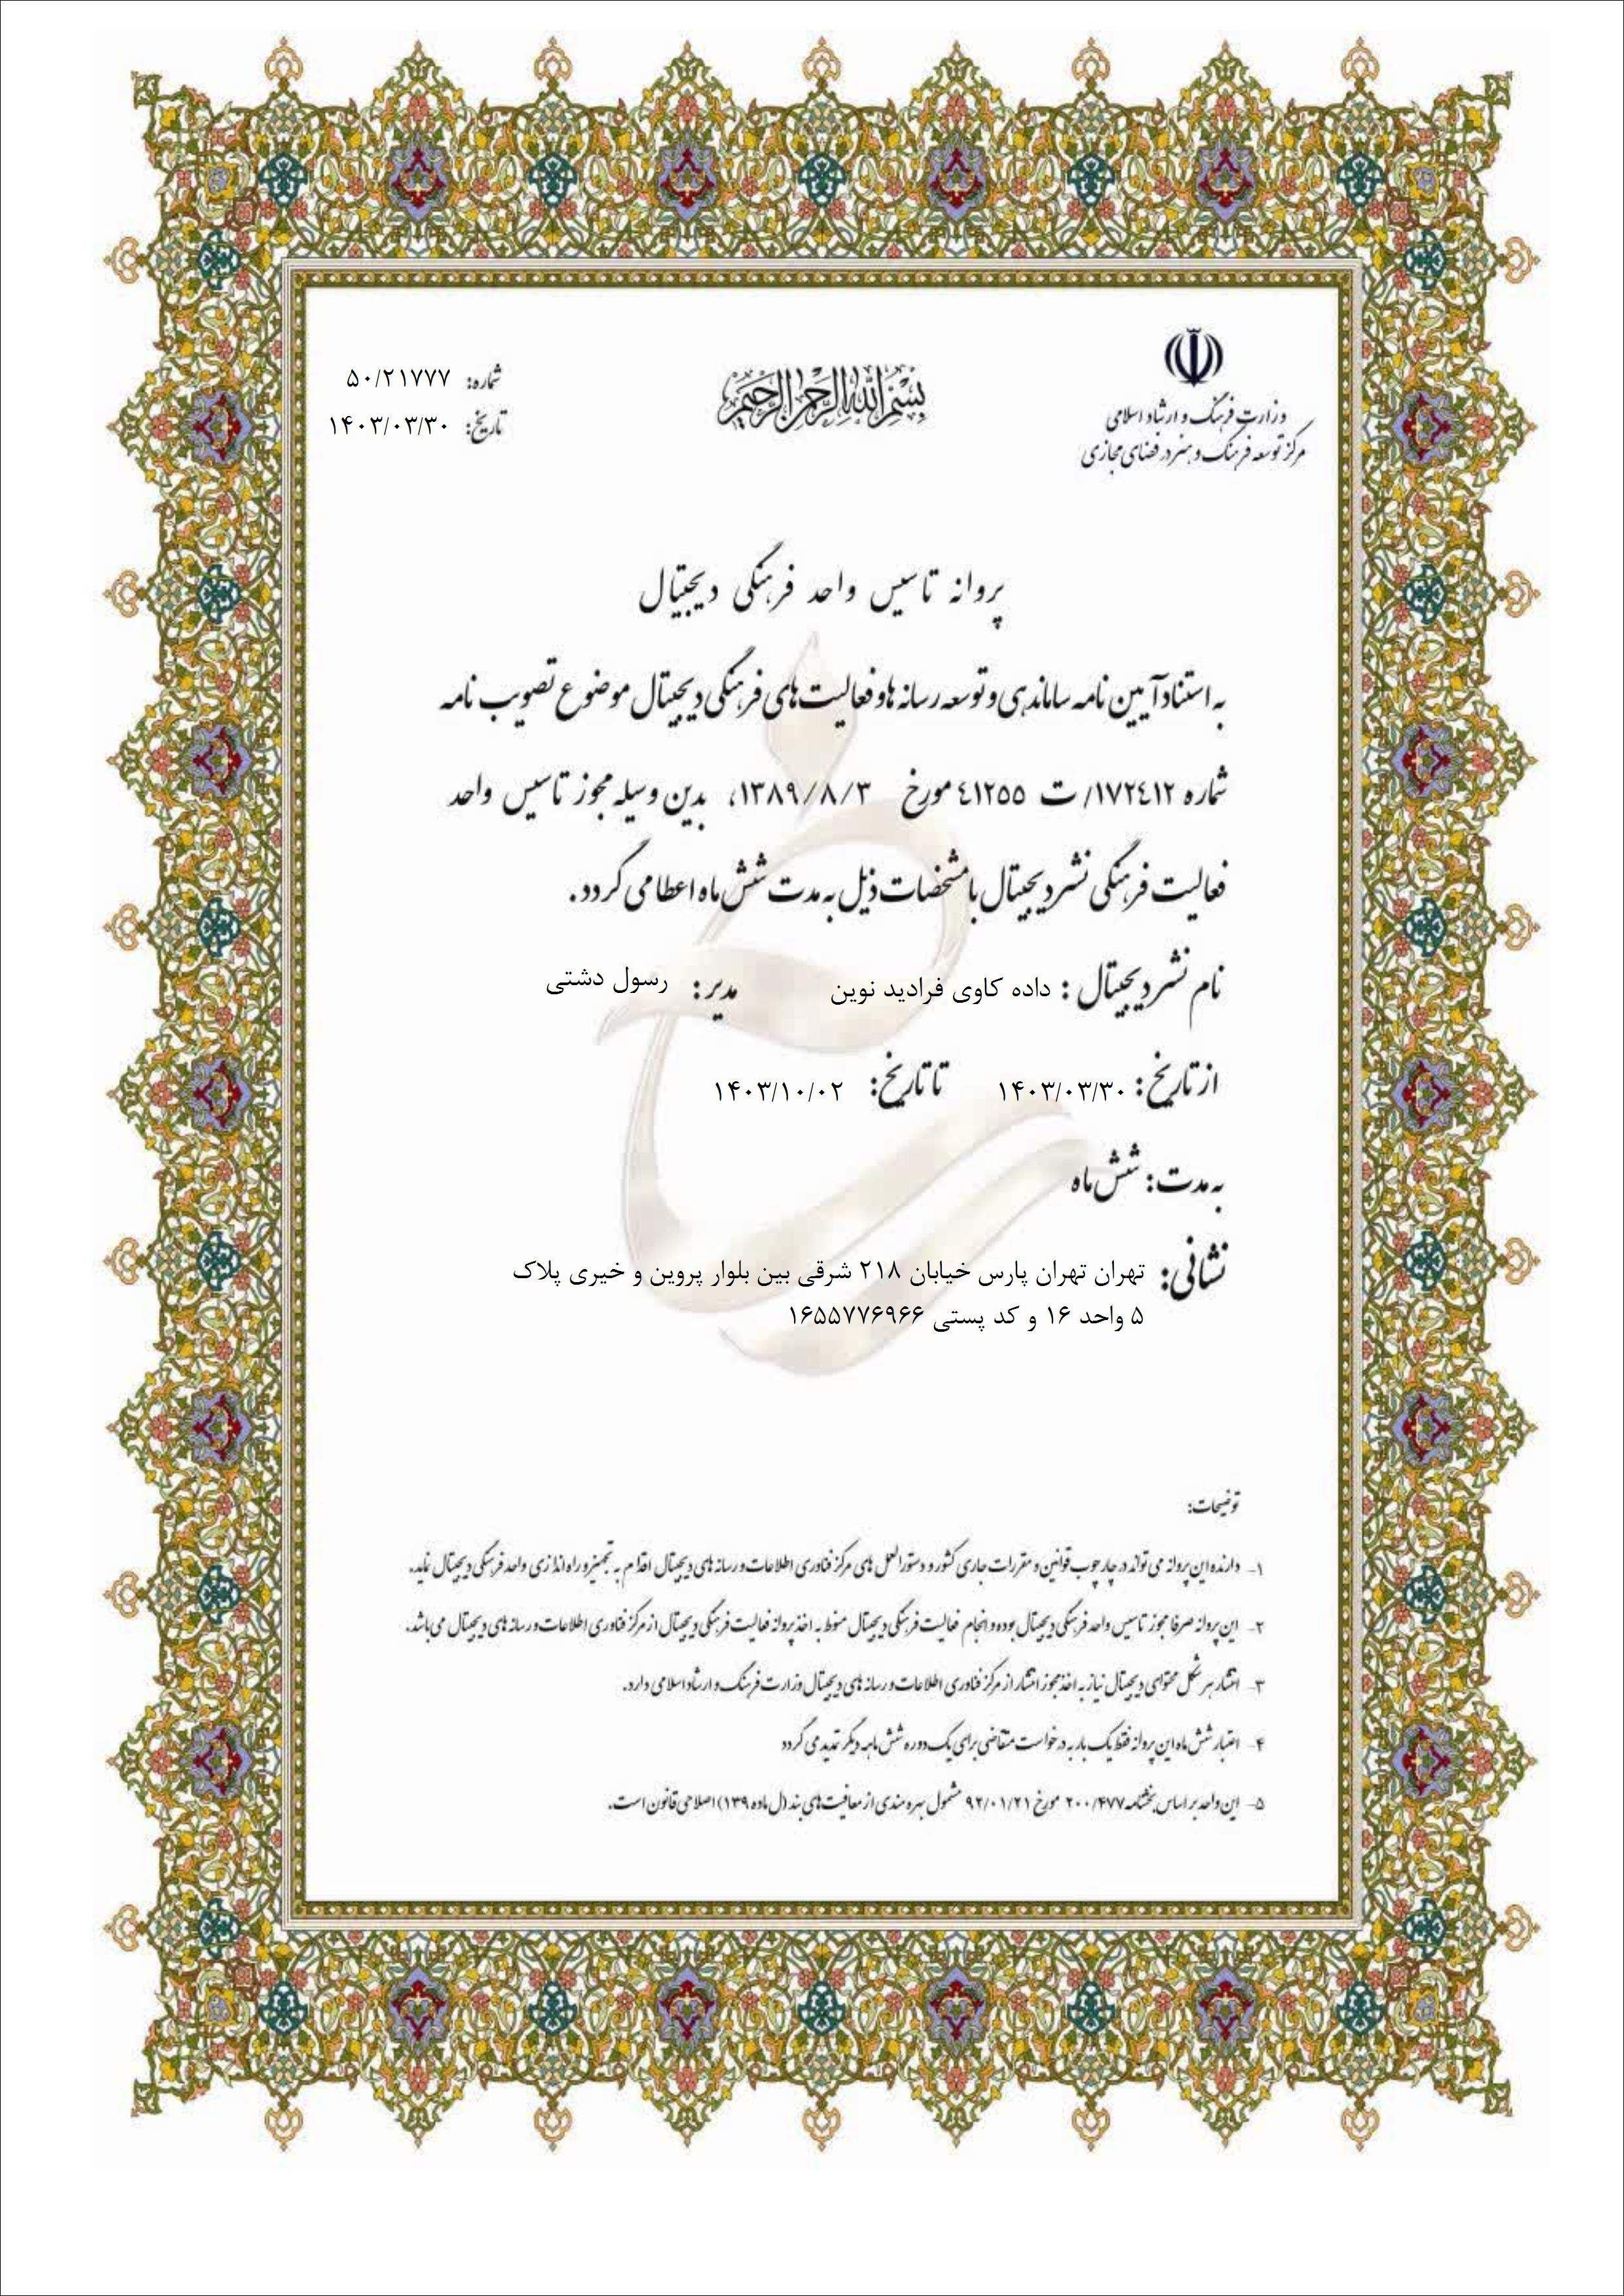 وزارت فرهنگ و ارشاد اسلامی
مرکز توسعه فرهنگ و هنر در فضای مجازی
بسم الله الرحمن الرحیم
شماره: ۵۰/۲۱۷۷۷
تاریخ: ۱۴۰۳/۰۳/۳۰
پروانه تاسیس واحد فرهنگی دیجیتال
به استناد آیین نامه ساماندهی و توسعه رسانه ها و فعالیت های فرهنگی دیجیتال موضوع تصویب نامه
شماره ۱۷۲٤۱۲/ ت ٤۱۲۵۵ مورخ ۱۳۸۹/۸/۳، بدین وسیله مجوز تاسیس واحد
فعالیت فرهنگی نشر دیجیتال با مشخصات ذیل به مدت شش ماه اعطا می گردد.
نام نشر دیجیتال : داده کاوی فرادید نوین مدیر: رسول دشتی
از تاریخ: ۱۴۰۳/۰۳/۳۰ تا تاریخ: ۱۴۰۳/۱۰/۰۲
به مدت: شش ماه
نشانی: تهران تهران پارس خیابان ۲۱۸ شرقی بین بلوار پروین و خیری پلاک
۵ واحد ۱۶ و کد پستی ۱۶۵۵۷۷۶۹۶۶
توضیحات:
۱- دارنده این پروانه می تواند در چارچوب قوانین و مقررات جاری کشور و دستورالعمل های مرکز فناوری اطلاعات و رسانه های دیجیتال اقدام به تجهیز و راه اندازی واحد فرهنگی دیجیتال نماید.
۲- این پروانه صرفا مجوز تاسیس واحد فرهنگی دیجیتال بوده و انجام فعالیت فرهنگی دیجیتال منوط به اخذ پروانه فعالیت فرهنگی دیجیتال از مرکز فناوری اطلاعات و رسانه های دیجیتال می باشد.
۳- انتشار هر شکل محتوای دیجیتال نیاز به اخذ مجوز انتشار از مرکز فناوری اطلاعات و رسانه های دیجیتال وزارت فرهنگ و ارشاد اسلامی دارد.
۴- اعتبار شش ماه این پروانه فقط یک بار به درخواست متقاضی برای یک دوره شش ماهه دیگر تمدید می گردد
۵- این واحد بر اساس بخشنامه ۲۰۰/۴۷۷ مورخ ۹۲/۰۱/۲۱ مشمول بهره مندی از معافیت های بند (ل ماده ۱۳۹) اصلاحی قانون است.